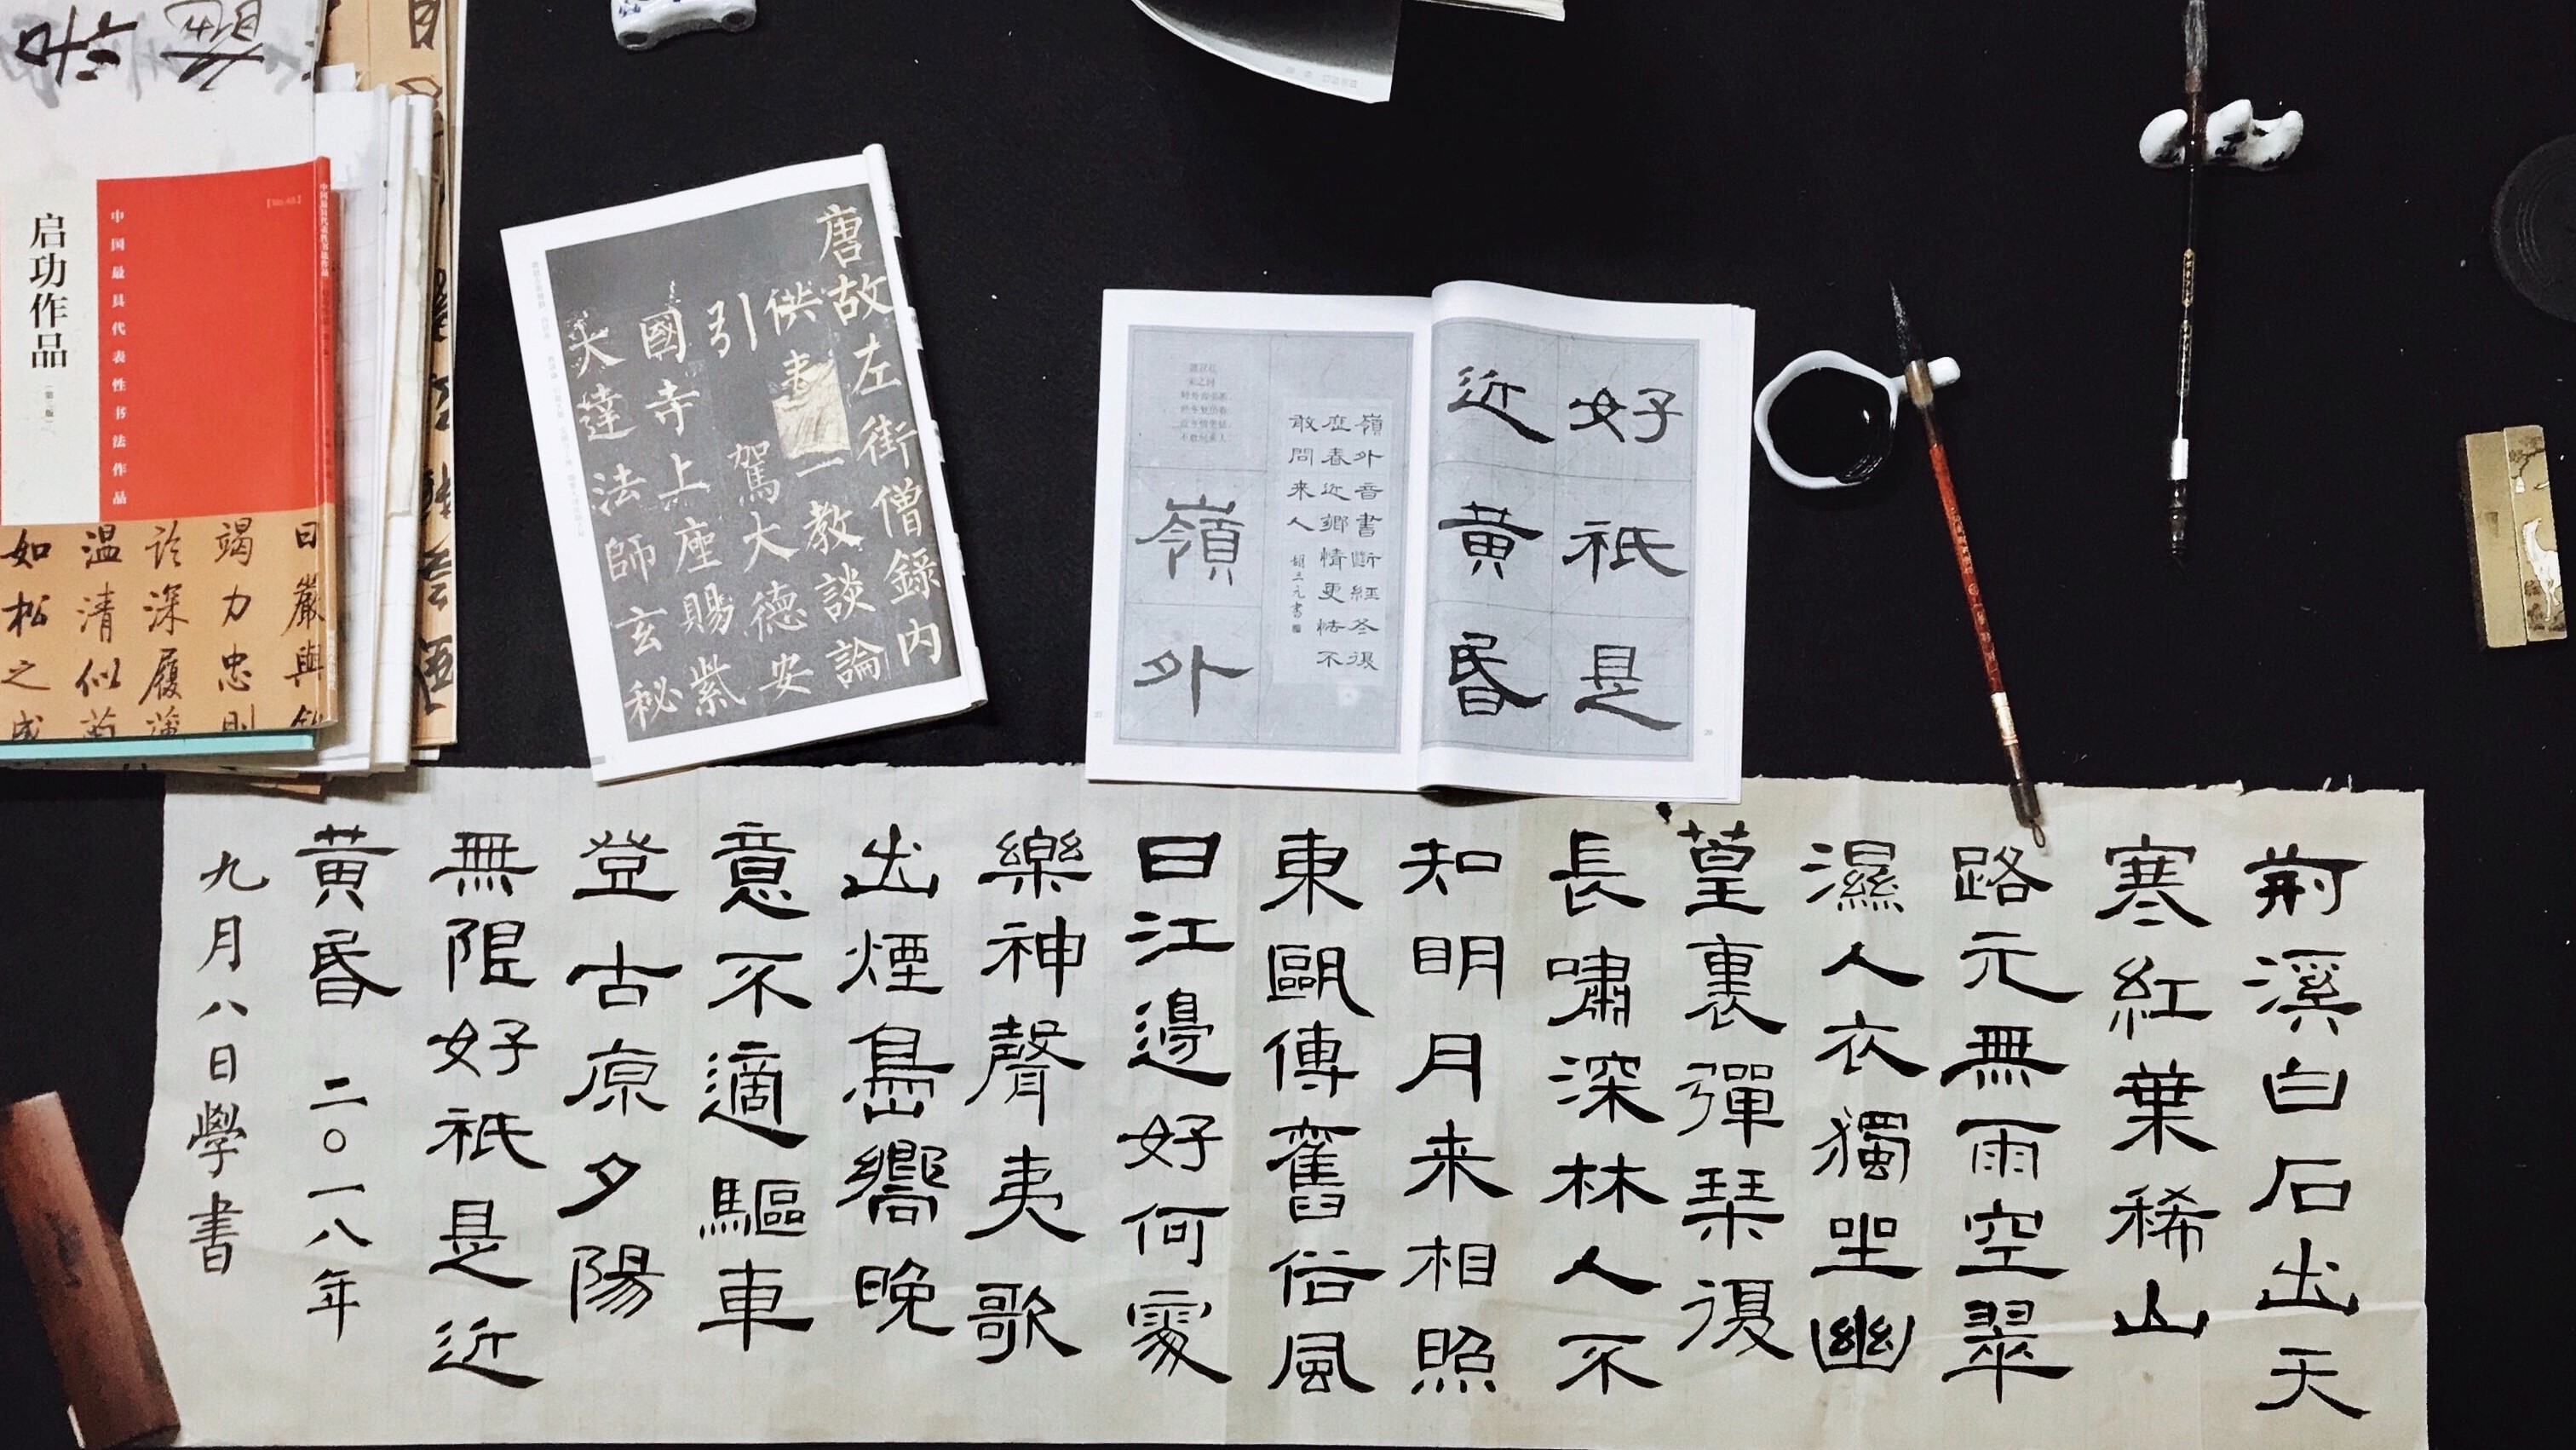 启功作品
（第二版）
中国最具代表性书法作品
曰嚴與
竭力忠則
深履薄
温清似
如松之
唐故左街僧錄内
供奉
一教談論
引
駕大德安
國寺上座賜紫
大達法師玄秘
好祇是
近黄昏
嶺外音書斷經冬復
歷春近鄉情更怯不
敢問来人
胡三元書
嶺外
荊溪白石出天
寒紅葉稀山
路元無雨空翠
濕人衣獨坐幽
篁裏彈琴復
長嘯深林人不
知明月来相照
東甌傳舊俗風
日江邊好何處
樂神聲夷歌
出煙島嚮晚
意不適驅車
登古原夕陽
無限好祇是近
黄昏 二〇一八年
九月八日學書